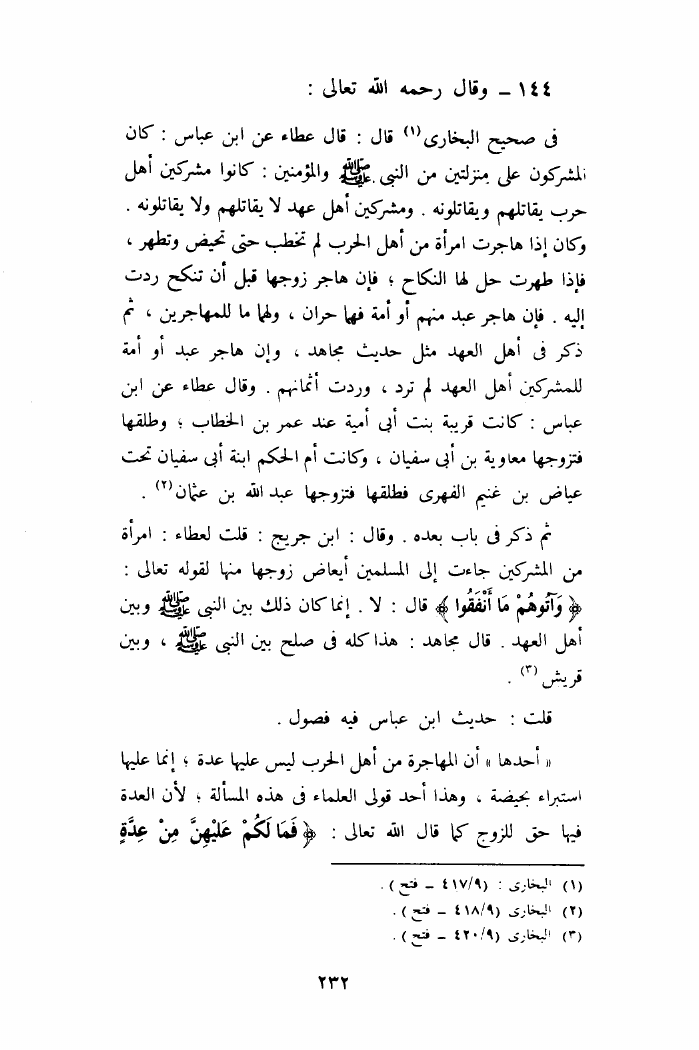 ١٤٤ ـ وقال رحمه الله تعالى :
فى صحيح البخارى(١) قال : قال عطاء عن ابن عباس : كان
المشركون على منزلتين من النبى ﷺ والمؤمنين : كانوا مشركين أهل
حرب يقاتلهم ويقاتلونه . ومشركين أهل عهد لا يقاتلهم ولا يقاتلونه .
وكان إذا هاجرت امرأة من أهل الحرب لم تخطب حتى تحيض وتطهر ،
فإذا طهرت حل لها النكاح ؛ فإن هاجر زوجها قبل أن تنكح ردت
إليه . فإن هاجر عبد منهم أو أمة فهما حران ، ولهما ما للمهاجرين ، ثم
ذكر فى أهل العهد مثل حديث مجاهد ، وإن هاجر عبد أو أمة
للمشركين أهل العهد لم ترد ، وردت أثمانهم . وقال عطاء عن ابن
عباس : كانت قريبة بنت أبى أمية عند عمر بن الخطاب ؛ وطلقها
فتزوجها معاوية بن أبى سفيان ، وكانت أم الحكم ابنة أبى سفيان تحت
عياض بن غنيم الفهرى فطلقها فتزوجها عبد الله بن عثمان(٢) .
ثم ذكر فى باب بعده . وقال : ابن جريج : قلت لعطاء : امرأة
من المشركين جاءت إلى المسلمين أيعاض زوجها منها لقوله تعالى :
﴿ وَآتُوهُمْ مَا أَنْفَقُوا ﴾ قال : لا . إنما كان ذلك بين النبى ﷺ وبين
أهل العهد . قال مجاهد : هذا كله فى صلح بين النبى ﷺ ، وبين
قريش(٣) .
قلت : حديث ابن عباس فيه فصول .
« أحدها » أن المهاجرة من أهل الحرب ليس عليها عدة ؛ إنما عليها
استبراء بحيضة ، وهذا أحد قولى العلماء فى هذه المسألة ؛ لأن العدة
فيها حق للزوج كما قال الله تعالى : ﴿ فَمَا لَكُمْ عَلَيْهِنَّ مِنْ عِدَّةٍ
(١) البخارى : (٤١٧/٩ ـ فتح) .
(٢) البخارى (٤١٨/٩ ـ فتح) .
(٣) البخارى (٤٢٠/٩ ـ فتح) .
٢٣٢